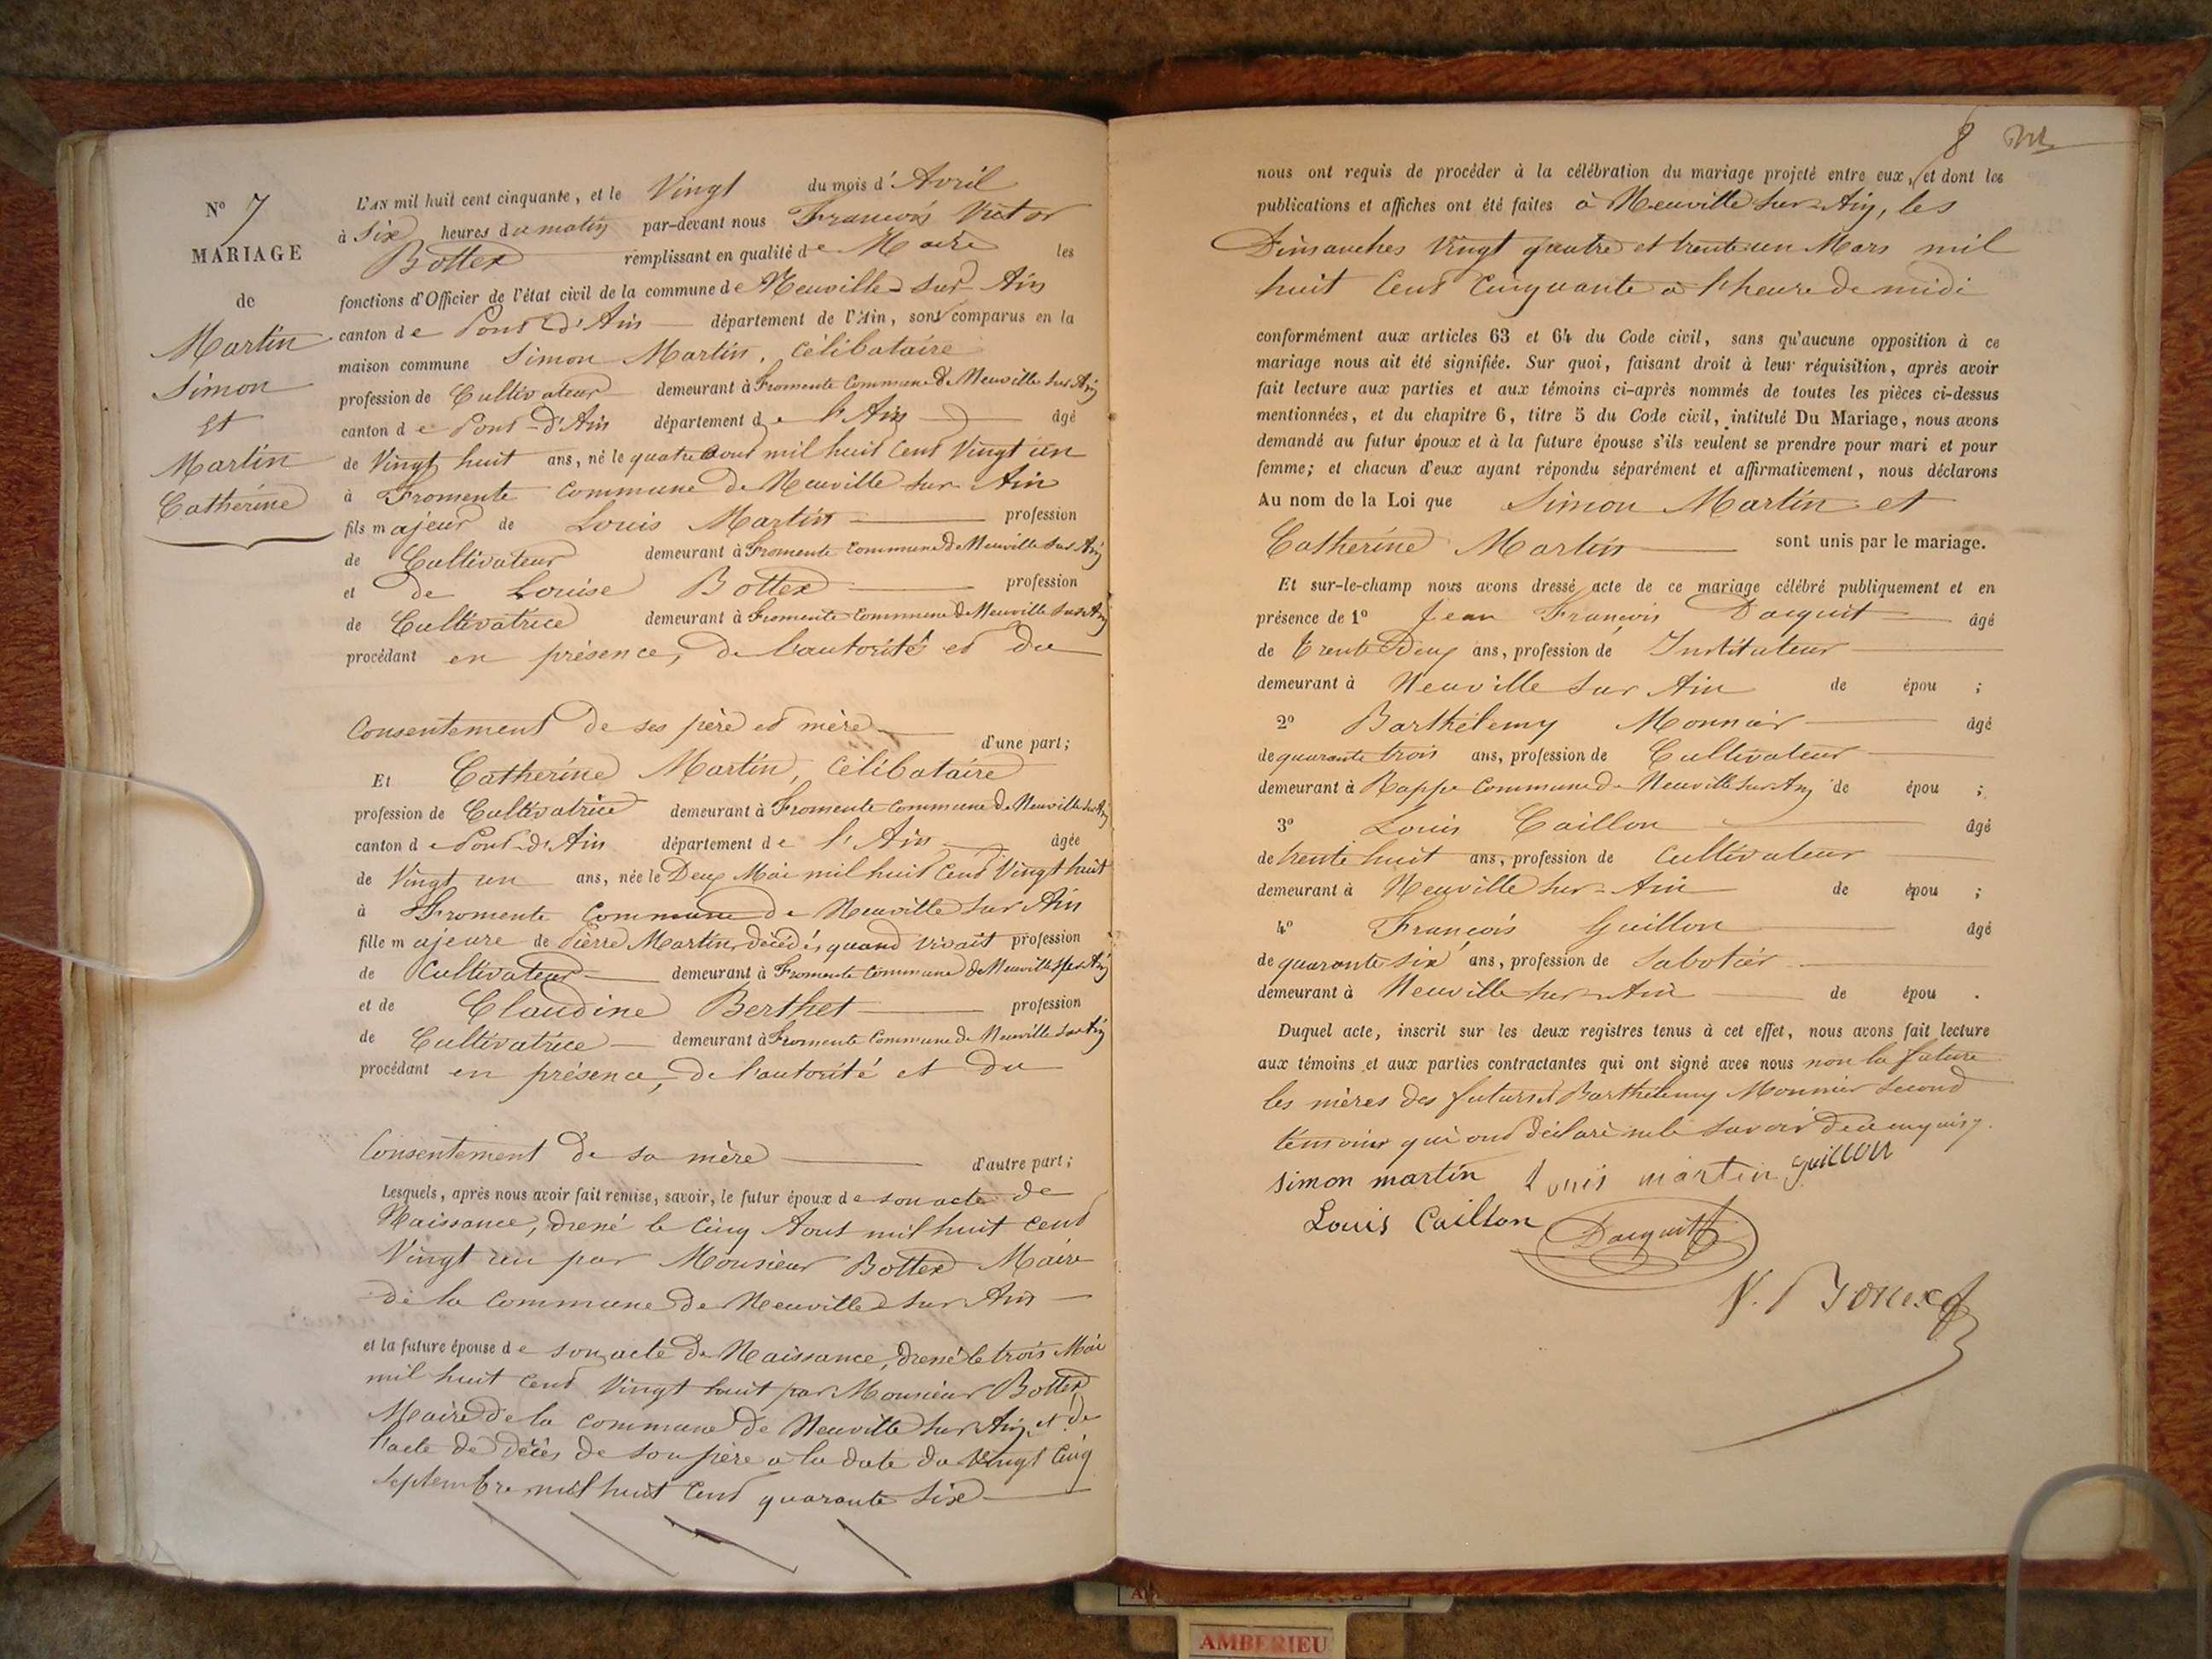 N° 7
MARIAGE
de
Martin
Simon
et
Martin
Catherine
L'AN mil huit cent cinquante, et le Vingt du mois d'Avril
à Six heures du matin par-devant nous François Victor
Bottex remplissant en qualité de Maire les
fonctions d'Officier de l'état civil de la commune de Neuville sur Ain
canton de Pont d'Ain département de l'Ain, sont comparus en la
maison commune Simon Martin, Célibataire
profession de Cultivateur demeurant à Fromente Commune de Neuville sur Ain
canton de Pont-d'Ain département de l'Ain âgé
de Vingt huit ans, né le quatre aout mil huit Cent Vingt un
à Fromente Commune de Neuville sur Ain
fils majeur de Louis Martin profession
de Cultivateur demeurant à Fromente Commune de Neuville sur Ain
et de Louise Bottex profession
de Cultivatrice demeurant à Fromente Commune de Neuville sur Ain
procédant en présence, de l'autorité et du
Consentement de ses père et mère d'une part;
Et Catherine Martin, Célibataire
profession de Cultivatrice demeurant à Fromente Commune de Neuville sur Ain
canton de Pont-d'Ain département de l'Ain âgée
de Vingt un ans, née le Deux Mai mil huit Cent Vingt huit
à Fromente Commune de Neuville sur Ain
fille majeure de Pierre Martin, décédé, quand vivait profession
de Cultivateur demeurant à Fromente Commune de Neuville sur Ain
et de Claudine Berthet profession
de Cultivatrice demeurant à Fromente Commune de Neuville sur Ain
procédant en présence, de l'autorité et du
Consentement de sa mère d'autre part;
Lesquels, après nous avoir fait remise, savoir, le futur époux de son acte de
Naissance, dressé le Cinq Aout mil huit cent
Vingt un par Monsieur Bottex Maire
de la Commune de Neuville sur Ain
et la future épouse de son acte de Naissance, dressé le trois Mai
mil huit cent Vingt huit par Monsieur Bottex
Maire de la commune de Neuville sur Ain, et de
l'acte de décès de son père a la date du Vingt Cinq
septembre mil huit Cent quarante Six
8
nous ont requis de procéder à la célébration du mariage projeté entre eux, et dont les
publications et affiches ont été faites à Neuville sur Ain, les
Dimanches Vingt quatre et trente un Mars mil
huit Cent Cinquante a l'heure de midi
conformément aux articles 63 et 64 du Code civil, sans qu'aucune opposition à ce
mariage nous ait été signifiée. Sur quoi, faisant droit à leur réquisition, après avoir
fait lecture aux parties et aux témoins ci-après nommés de toutes les pièces ci-dessus
mentionnées, et du chapitre 6, titre 5 du Code civil, intitulé Du Mariage, nous avons
demandé au futur époux et à la future épouse s'ils veulent se prendre pour mari et pour
femme; et chacun d'eux ayant répondu séparément et affirmativement, nous déclarons
Au nom de la Loi que Simon Martin et
Catherine Martin sont unis par le mariage.
Et sur-le-champ nous avons dressé acte de ce mariage célébré publiquement et en
présence de 1° Jean François Dacquit âgé
de trente Deux ans, profession de Instituteur
demeurant à Neuville sur Ain de épou ;
2° Barthélemy Monnier âgé
de quarante trois ans, profession de Cultivateur
demeurant à Rappe Commune de Neuville sur Ain de épou ;
3° Louis Caillon âgé
de trente huit ans, profession de Cultivateur
demeurant à Neuville sur Ain de épou ;
4° François Guillon âgé
de quarante six ans, profession de Sabotier
demeurant à Neuville sur Ain de épou .
Duquel acte, inscrit sur les deux registres tenus à cet effet, nous avons fait lecture
aux témoins et aux parties contractantes qui ont signé avec nous non la future
les mères des futurs et Barthélemy Monnier second
témoins qui ont déclaré ne le savoir de ce enquis.
simon martin Louis martin guillon
Louis Caillon Dacquit
V. Bottex
AMBERIEU